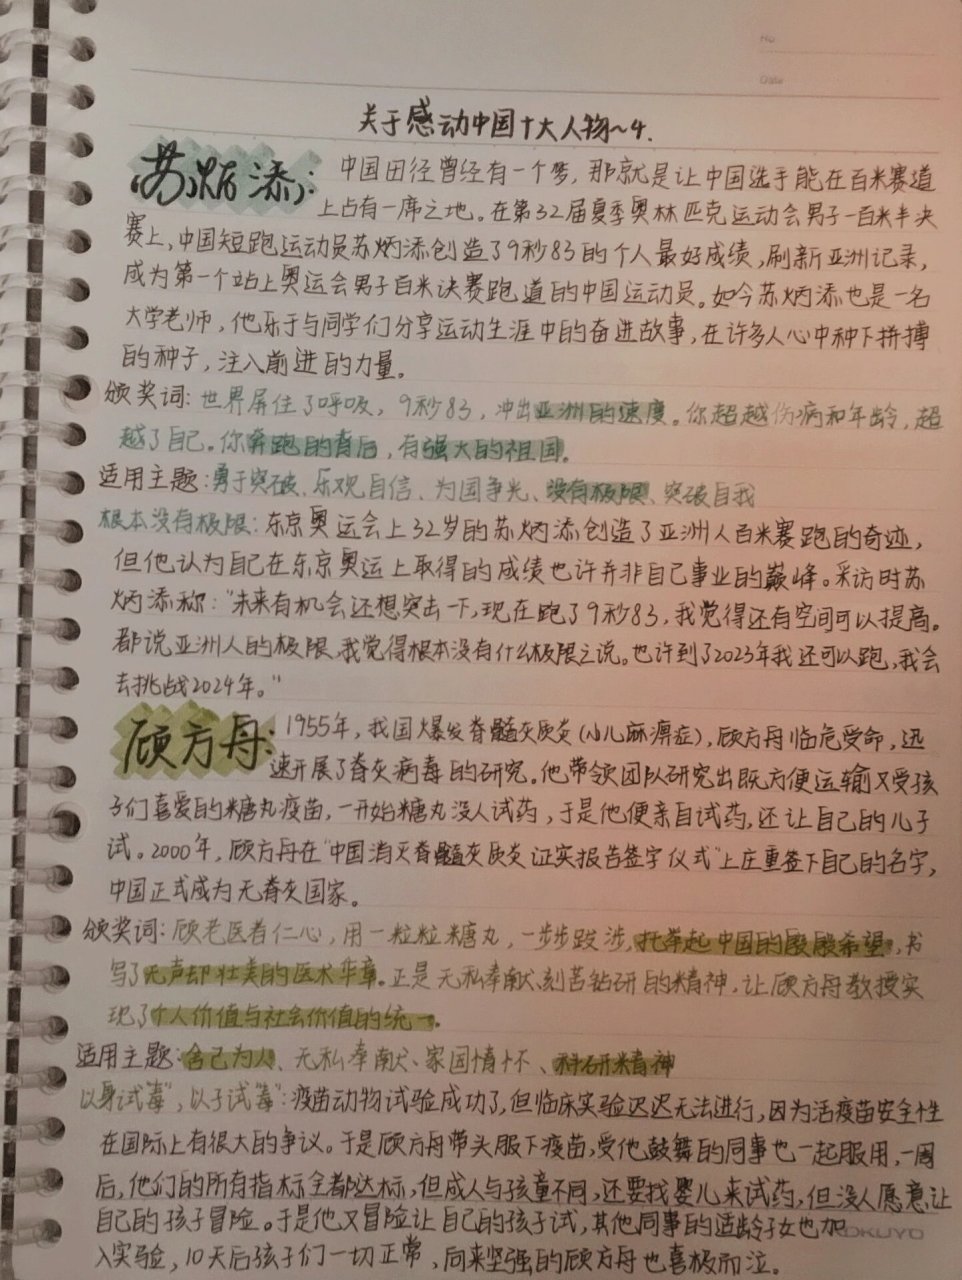 No
Date
关于感动中国十大人物~4.
苏炳添: 中国田径曾经有一个梦, 那就是让中国选手能在百米赛道
上占有一席之地。在第32届夏季奥林匹克运动会男子一百米半决
赛上, 中国短跑运动员苏炳添创造了9秒83的个人最好成绩, 刷新亚洲记录,
成为第一个站上奥运会男子百米决赛跑道的中国运动员。如今苏炳添也是一名
大学老师, 他乐于与同学们分享运动生涯中的奋进故事, 在许多人心中种下拼搏
的种子, 注入前进的力量。
颁奖词: 世界屏住了呼吸, 9秒83, 冲出亚洲的速度。你超越伤病和年龄, 超
越了自己。你奔跑的背后, 有强大的祖国。
适用主题: 勇于突破、乐观自信、为国争光、没有极限、突破自我
根本没有极限: 东京奥运会上32岁的苏炳添创造了亚洲人百米赛跑的奇迹,
但他认为自己在东京奥运上取得的成绩也许并非自己事业的巅峰。采访时苏
炳添称: "未来有机会还想突击一下, 现在跑了9秒83, 我觉得还有空间可以提高。
都说亚洲人的极限, 我觉得根本没有什么极限之说。也许到了2023年我还可以跑, 我会
去挑战2024年。"
顾方舟: 1955年, 我国爆发脊髓灰质炎(小儿麻痹症), 顾方舟临危受命, 迅
速开展了脊灰病毒的研究。他带领团队研究出既方便运输又受孩
子们喜爱的糖丸疫苗, 一开始糖丸没人试药, 于是他便亲自试药, 还让自己的儿子
试。2000年, 顾方舟在"中国消灭脊髓灰质炎证实报告签字仪式"上庄重签下自己的名字,
中国正式成为无脊灰国家。
颁奖词: 顾老医者仁心, 用一粒粒糖丸, 一步步跋涉, 托举起中国的殷殷希望, 书
写了无声却壮美的医术华章。正是无私奉献、刻苦钻研的精神, 让顾方舟教授实
现了个人价值与社会价值的统一。
适用主题: 舍己为人、无私奉献、家国情怀、科研精神
以身试"毒", 以子试"毒": 疫苗动物试验成功了, 但临床实验迟迟无法进行, 因为活疫苗安全性
在国际上有很大的争议。于是顾方舟带头服下疫苗, 受他鼓舞的同事也一起服用, 一周
后, 他们的所有指标全都达标, 但成人与孩童不同, 还要找婴儿来试药, 但没人愿意让
自己的孩子冒险。于是他又冒险让自己的孩子试, 其他同事的适龄子女也加
入实验, 10天后孩子们一切正常, 向来坚强的顾方舟也喜极而泣。
KOKUYO